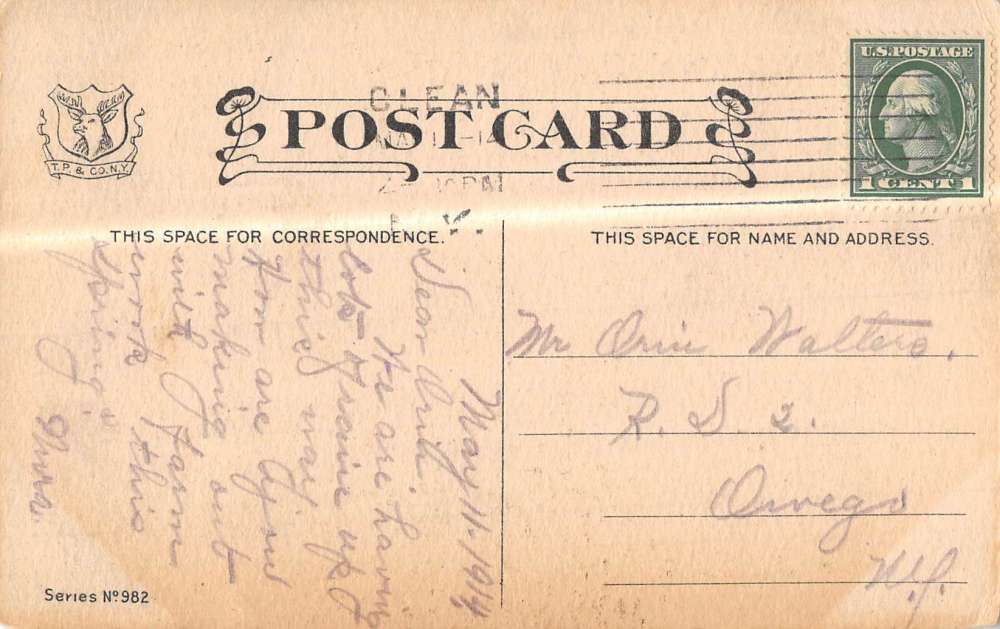 OLEAN
2- PM
N.Y.
U.S. POSTAGE
1 CENT 1
T. P. & CO. N.Y.
POST CARD
THIS SPACE FOR CORRESPONDENCE.
THIS SPACE FOR NAME AND ADDRESS.
May 11 1914
Dear
We are having
lots of raine up
this way
How are you
making out
with farm
work this
spring.
Mr Orin Walters,
R. D. 2.
Owego
N.Y.
Series Nº 982